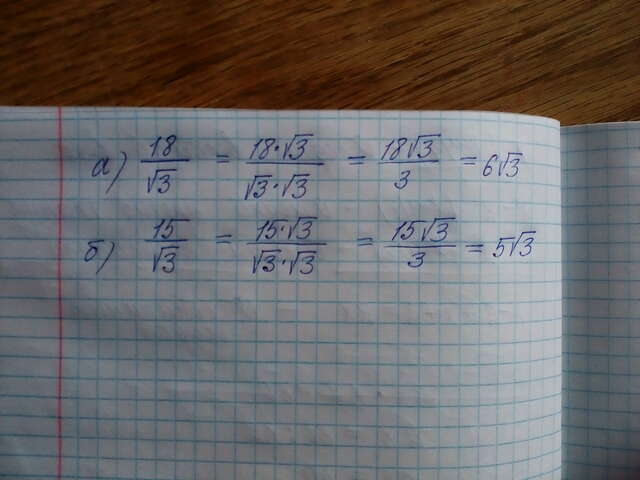 а) 18/√3 = 18·√3/√3·√3 = 18√3/3 = 6√3
б) 15/√3 = 15·√3/√3·√3 = 15√3/3 = 5√3